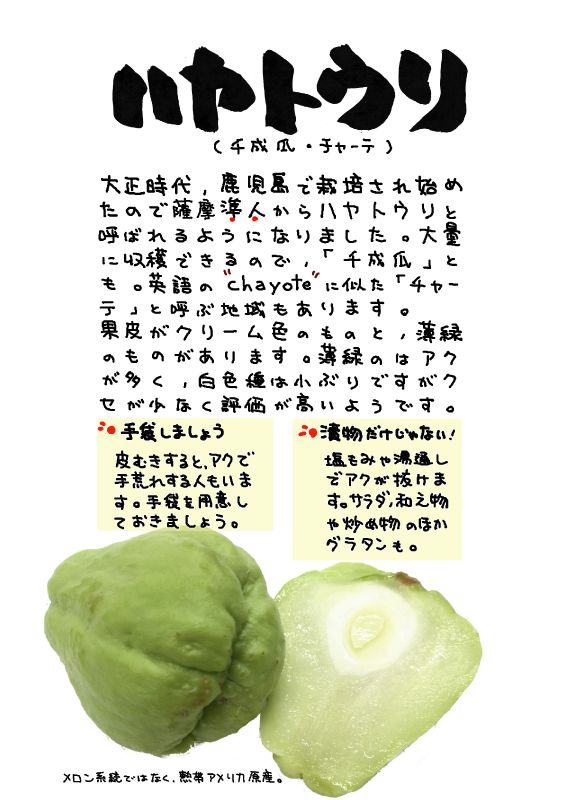 ハヤトウリ
(千成瓜・チャーテ)
大正時代,鹿児島で栽培され始め
たので薩摩隼人からハヤトウリと
呼ばれるようになりました。大量
に収穫できるので,「千成瓜」と
も。英語の"chayote"に似た「チャー
テ」と呼ぶ地域もあります。
果皮がクリーム色のものと,薄緑
のものがあります。薄緑のはアク
が多く,白色種は小ぶりですがク
セが少なく評価が高いようです。
手袋しましょう
皮むきすると,アクで
手荒れする人もいま
す。手袋を用意し
ておきましょう。
漬物だけじゃない!
塩もみや湯通し
でアクが抜けま
す。サラダ,和え物
や炒め物のほか
グラタンも。
メロン系統ではなく,熱帯アメリカ原産。